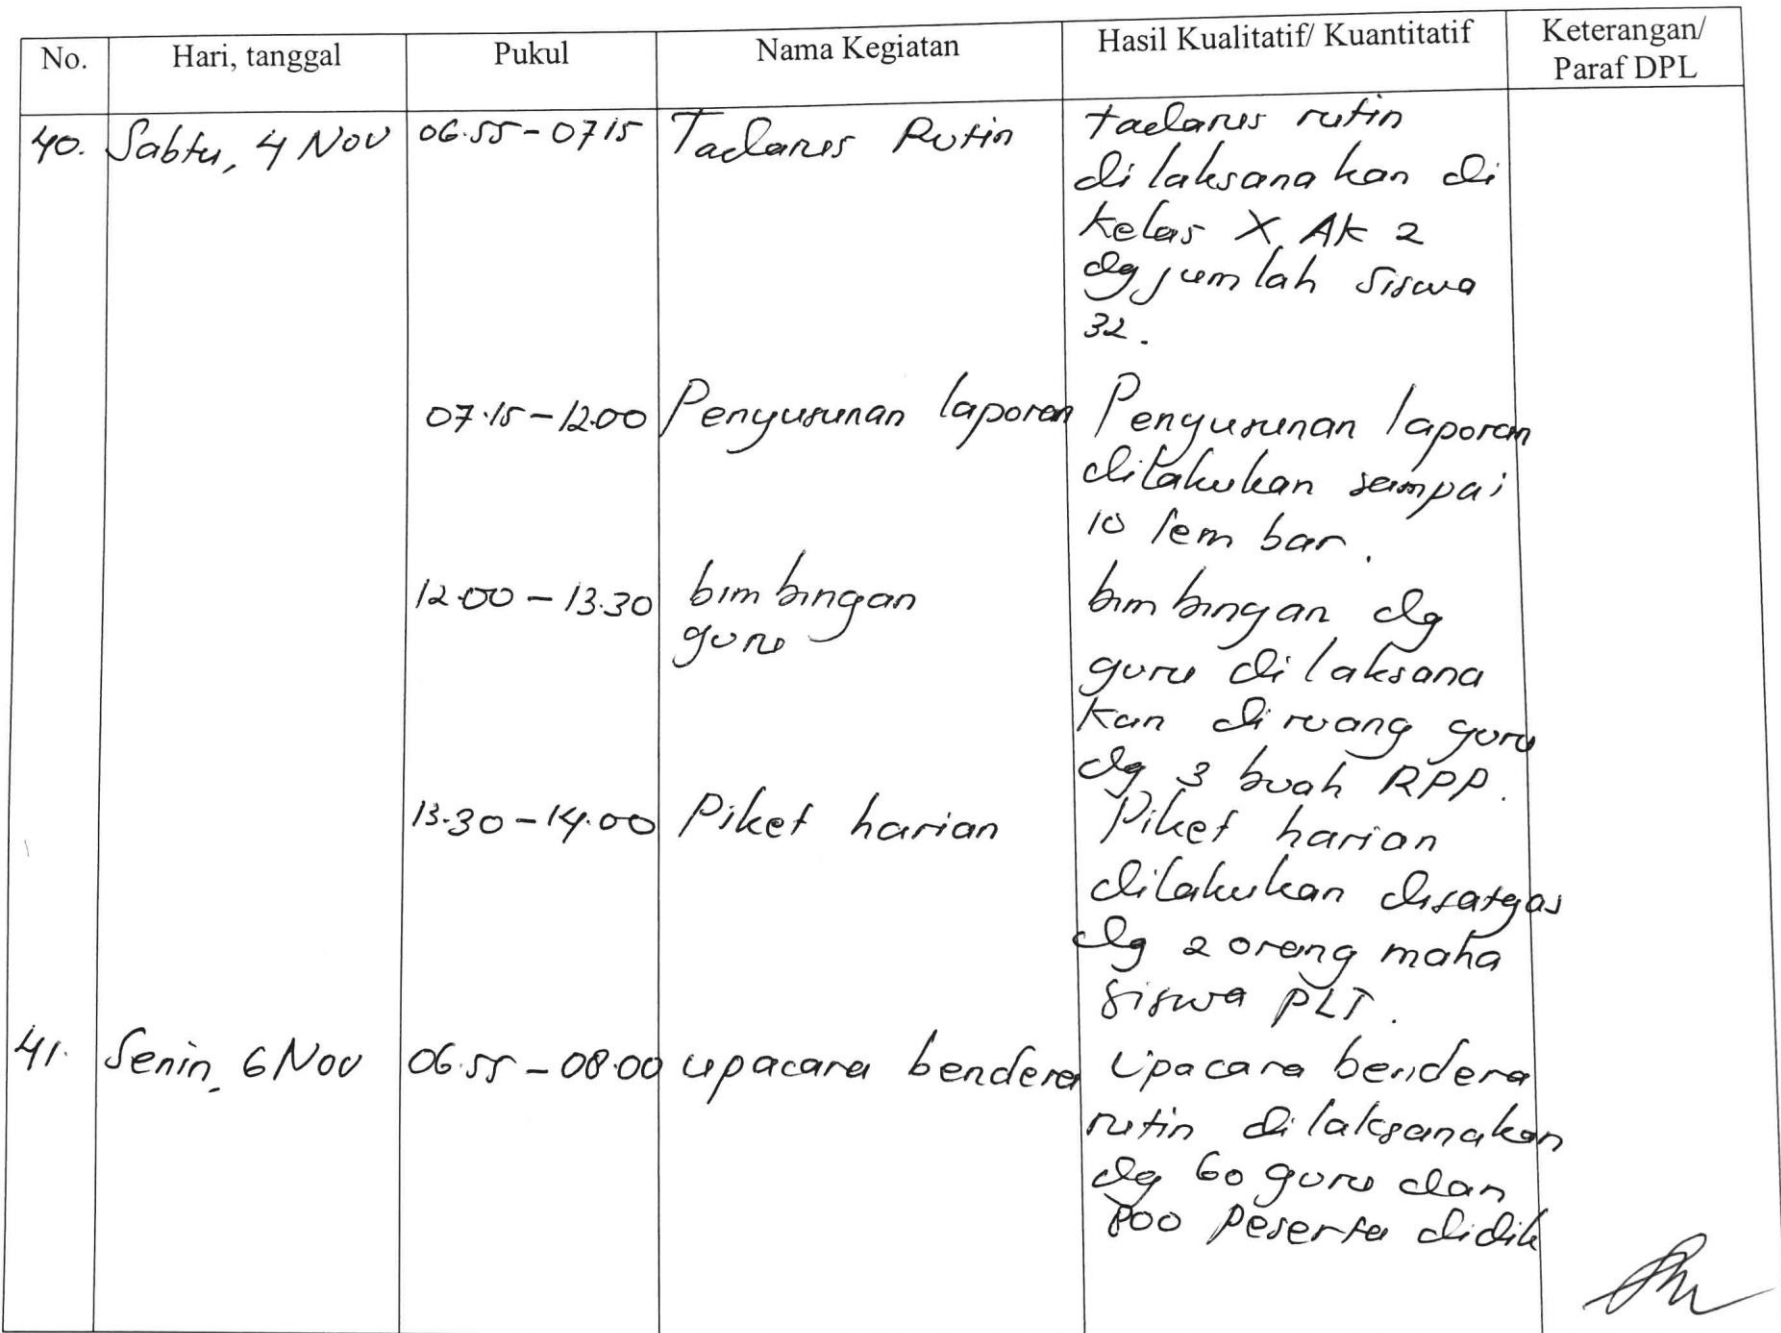 No. Hari, tanggal Pukul Nama Kegiatan Hasil Kualitatif/ Kuantitatif Keterangan/
Paraf DPL
40. Sabtu, 4 Nov 06.55 - 0715 Tadarus Rutin tadarus rutin
dilaksanakan di
kelas X AK 2
dg jumlah siswa
32.
07.15 - 12.00 Penyusunan laporan Penyusunan laporan
dilakukan sampai
10 lembar.
12.00 - 13.30 bimbingan bimbingan dg
guru guru dilaksana
kan diruang guru
dg 3 buah RPP.
13.30 - 14.00 Piket harian Piket harian
dilakukan disatgas
dg 2 orang maha
siswa PLT.
41. Senin, 6 Nov 06.55 - 08.00 upacara bendera Upacara bendera
rutin dilaksanakan
dg 60 guru dan
800 peserta didik